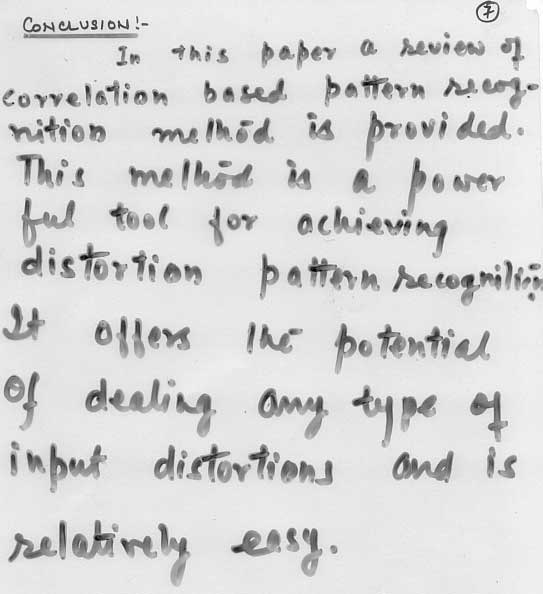 7
CONCLUSION!-
In this paper a review of
correlation based pattern recog-
nition method is provided.
This method is a power
ful tool for achieving
distortion pattern recognition
It offers the potential
Of dealing any type of
input distortions and is
relatively easy.